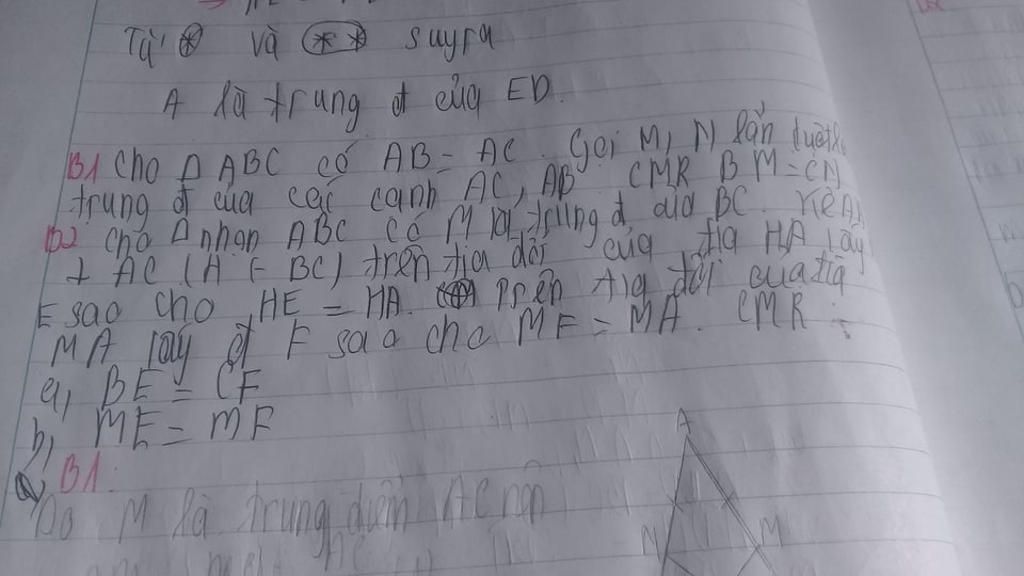 Từ ⊛ và ⊛⊛ suy ra
A là trung đ của ED.
B1 Cho Δ ABC có AB = AC. Gọi M, N lần lượt là
trung đ của các cạnh AC, AB CMR BM = CN
B2 cho Δ nhọn ABC có M là trung đ của BC. Kẻ AH
⊥ AC (H ∈ BC) trên tia đối của tia HA lấy
E sao cho HE = HA. Trên tia đối của tia
MA lấy đ F sao cho MF = MA. CMR :
a, BE = CF
b, ME = MF
B1.
a, Do M là trung điểm AC nên
A
N
M